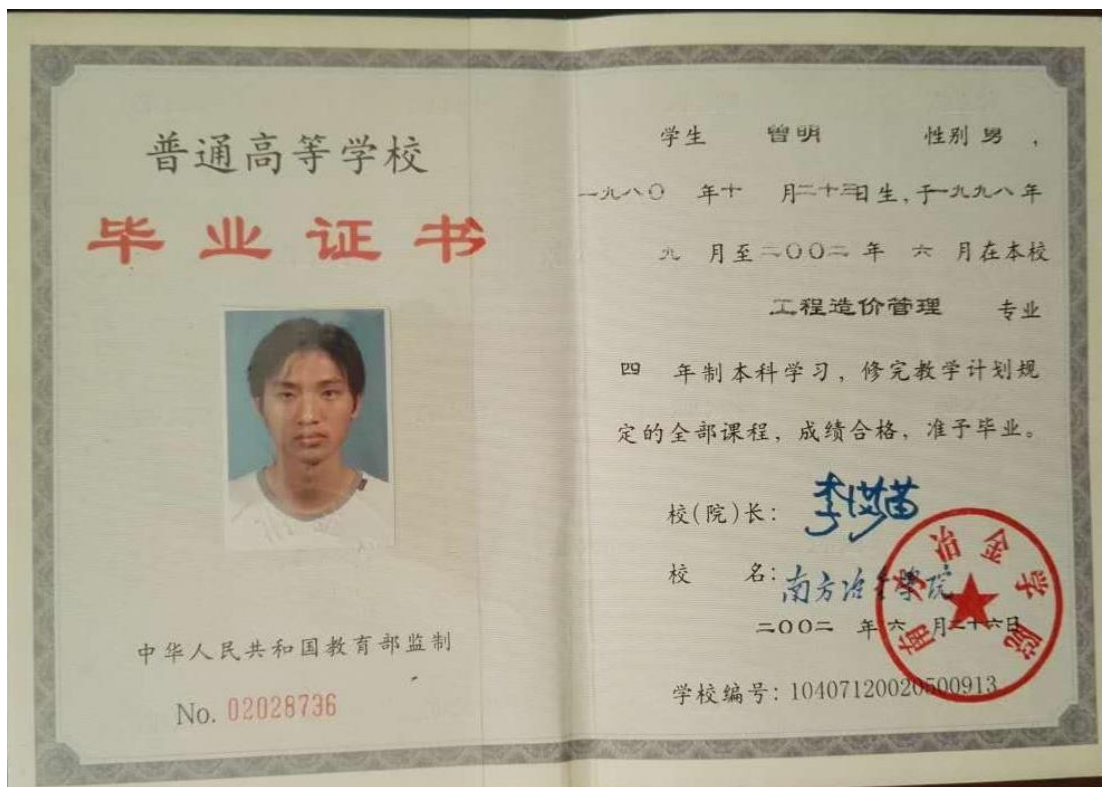 普通高等学校
毕业证书
中华人民共和国教育部监制
No. 02028736
学生 曾明 性别 男 ,
一九八〇 年十 月二十三日生,于一九九八年
九 月至二〇〇二 年 六 月在本校
工程造价管理 专业
四 年制本科学习，修完教学计划规
定的全部课程，成绩合格，准予毕业。
校(院)长:
校 名: 南方冶金学院
二〇〇二 年 六 月二十六日
学校编号: 10407120020500913
南方冶金学院